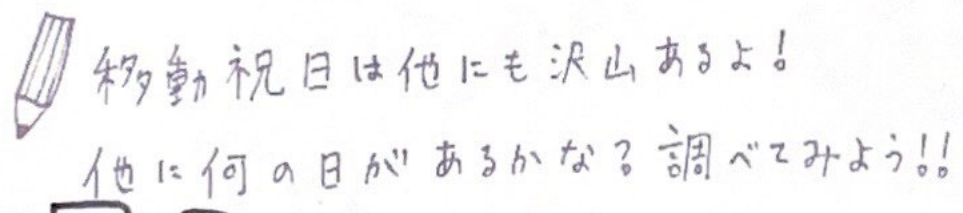 移動祝日は他にも沢山あるよ!
他に何の日があるかな?調べてみよう!!